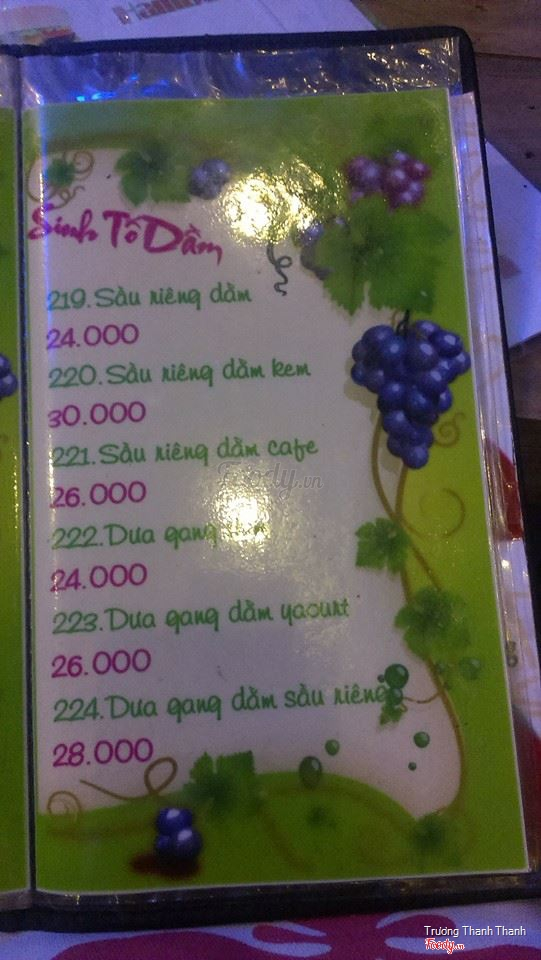 Sinh Tố Dầm
219.Sầu riêng dầm
24.000
220.Sầu riêng dầm kem
30.000
221.Sầu riêng dầm cafe
26.000
Foody.vn
222.Dưa gang
24.000
223.Dưa gang dầm yaourt
26.000
224.Dưa gang dầm sầu riêng
28.000
Trương Thanh Thanh
Foody.vn